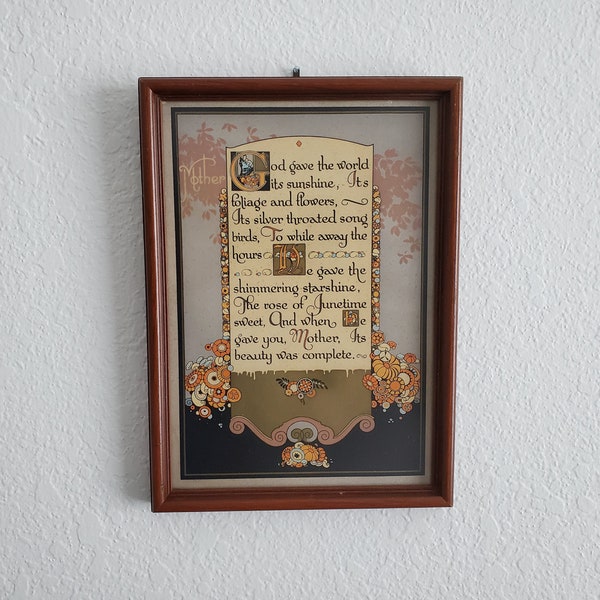 Mother
God gave the world
its sunshine, Its
foliage and flowers,
Its silver throated song
birds, To while away the
hours
He gave the
shimmering starshine,
The rose of Junetime
sweet, And when He
gave you, Mother, Its
beauty was complete.